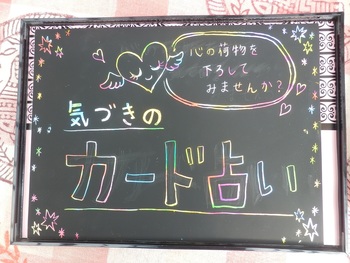 心の荷物を
下ろして
みませんか?
気づきの
カード占い